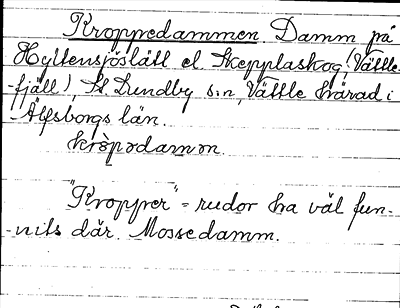 Kroppedammen Damm på
Hyltensjöslätt el Skepplaskog, (Vättle-
-fjäll), St Lundby s:n, Vättle härad i
Älfsborgs län.
kròpədamən.
"Kropper" = rudor ha väl fun-
-nits där. Mossedamm.